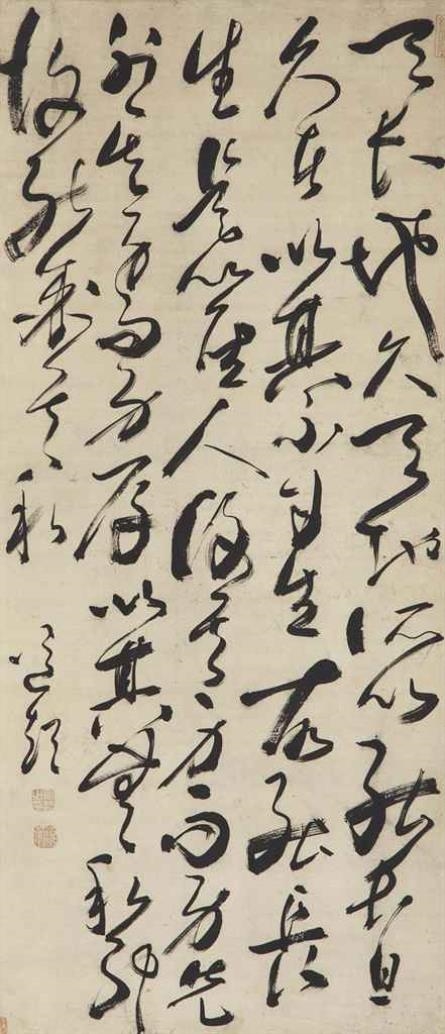 天長地久天地所以能長且
久者以其不自生故能長
生是以聖人後其身而身先
外其身而身存以其無私耶
故能成其私